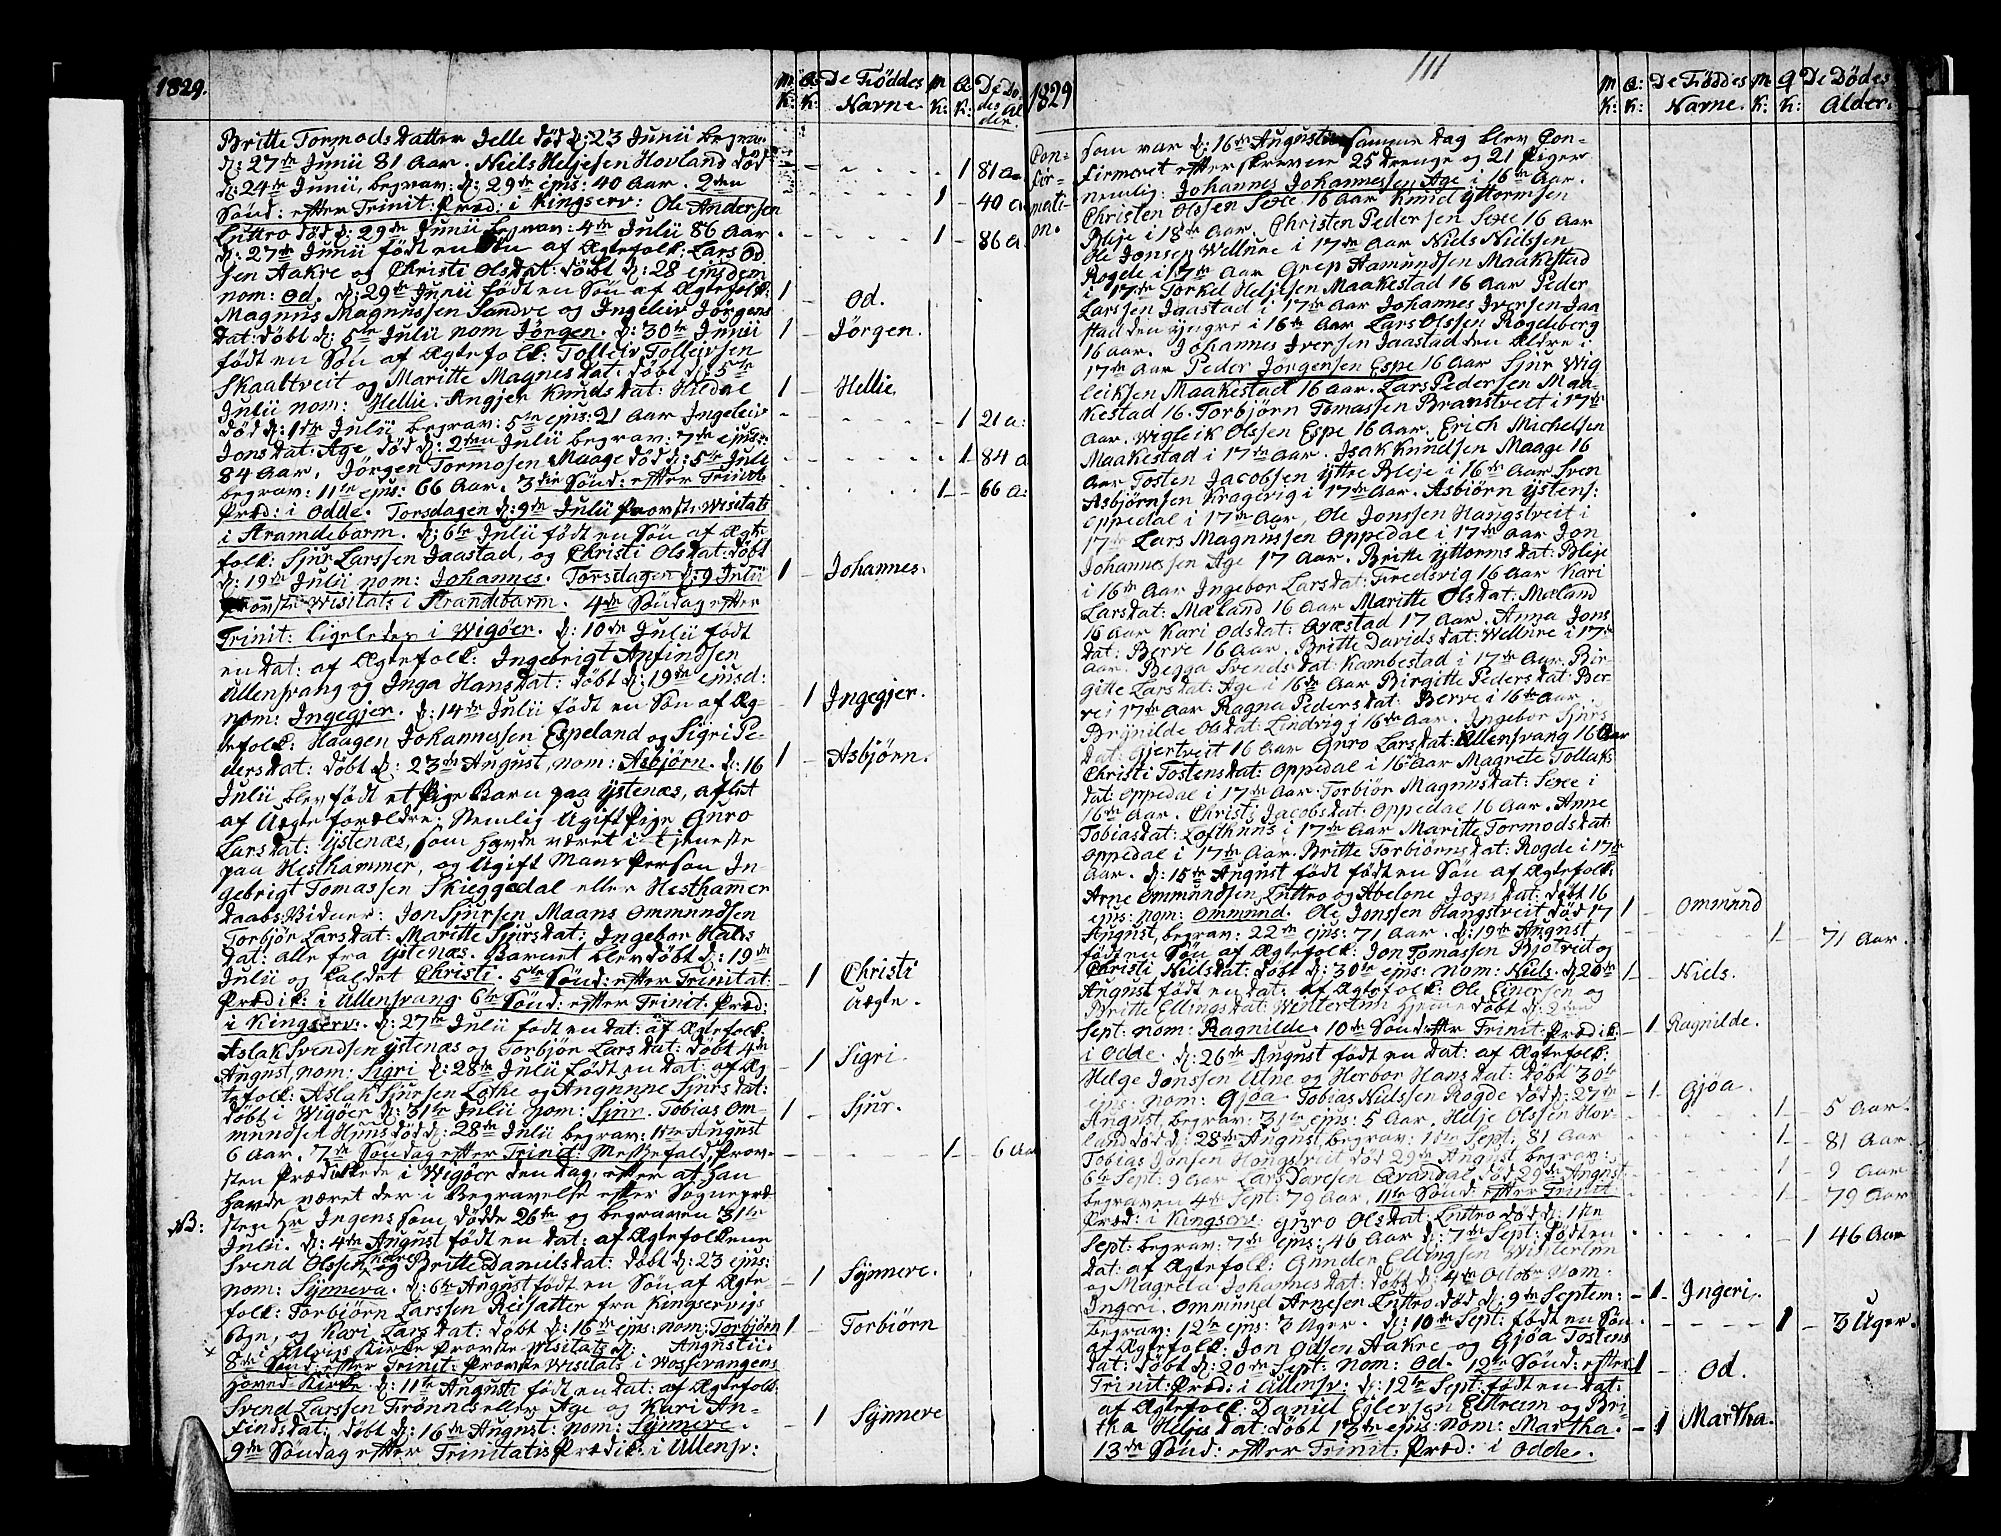 1829.
M: K:
Q: K:
De Föddes Navne
M K:
Q: K:
De Dödes Alder.
Britte Tormods datter Jelle död d: 23 Junii begrav:
d: 27de Junii 81 Aar. Niels Heljesen Hovland död
d: 24de Junii, begrav: d: 29de ejus: 40 Aar. 2den
Sönd: efter Trinit: Præd: i Kingserv: Ole Andersen
Luttro död d: 29de Junii begrav: 4de Julii 86 Aar.
d: 27de Junii födt en Sön af Ægtefolk: Lars Od
sen Aakre og Christi Olsdat: döbt d: 28 ejusdem
nom: Od. d: 29de Junii födt en Sön af Ægtefolk:
Magnus Magnussen Sandve og Ingeleiv Jörgens
dat: döbt d: 5te Julii nom Jörgen. d: 30te Junii
födt en Sön af Ægtefolk: Tolleiv Tolleivsen
Skaaltveit og Maritte Magnesdat: döbt d: 5te
Julii nom: Hellie. Angjer Knudsdat: Hildal
död d: 1ste Julii begrav: 5te ejus: 21 Aar Ingeleiv
Jonsdat: Age död d: 2den Julii begrav: 7de ejus:
84 Aar. Jörgen Tormosen Maage död d: 5te Juli
begrav: 11te ejus: 66 Aar. 3die Sönd: efter Trinit:
Præd: i Odde. Torsdagen d: 9de Julii Provste Wisitats
i Strandebarm. d: 6te Julii födt en Sön af Ægte
folk: Sjur Larssen Jaastad, og Christi Olsdat: döbt
d: 19de Julii nom: Johannes. Torsdagen d: 9 Julii
Provste Wisitats i Strandebarm. 4de Söndag efter
Trinit: ligeledes i Wigöer. d: 10de Julii födt
en dat: af Ægtefolk: Ingebrigt Anfindsen
Ullensvang og Inga Hansdat: döbt d: 19de ejusd:
nom: Ingegjer. d: 14de Julii födt en Sön af Æg-
tefolk: Haagen Johannessen Espeland og Sigri Pe-
dersdat: döbt d: 23de August, nom: Asbjörn. d: 16
Julii blev födt et Pige Barn paa Ystenæs, aflet
af Uægte forældre: Nemlig Ugift Pige Guro
Larsdat: Ystenæs, som havde været i tjeneste
paa Hesthammer, og Ugift Mans Person In-
gebrigt Tomassen Skieggedal eller Hesthamer
Daabs Vidner: Jon Sjursen Maans Ommundsen
Torbjör Larsdat: Maritte Sjursdat: Ingebor Hals
dat: alle fra Ystenæs. Barnet blev döbt d: 19de
Julii og kaldet Christi. 5te Sönd: efter Trinitat:
Prædik: i Ullensvang. 6te Sönd: efter Trinit: Præd:
i Kingserv: d: 27de Julii födt en dat: af Ægtefolk:
Aslak Svendsen Ystenæs og Torbjör Larsdat: döbt 4de
August, nom: Sigri d: 28de Julii födt en dat: af Æg
tefolk: Aslak Sjursen Lothe og Angunne Sjursdat:
döbt i Wigöer d: 31te Julii nom: Sjur. Tobias Om-
mundsen Huus död d: 28de Julii begrav: 1ste August
6 Aar. 7de Söndag efter Trinit: Messefald, Prov-
sten Prædikede i Wigöer den dag, efter at han
havde været der i Begravelse efter Sognepræ
NB: sten Hr Ingens som dödde 26de og begraven 31te
Julii. d: 4de August födt en dat: af Ægtefolkene
Svend Olssen Thare og Britte Danielsdat: döbt d: 23 ejus:
nom: Synneva. d: 6te August födt en Sön af Ægte-
folk: Torbiörn Larssen Reisatter fra Kingservigs
Sogn, og Kari Larsdat: döbt d: 16de ejus: nom: Torbjörn
i Ulvigs Kirke Provste Wisitats d: Augustii:
8de Sönd: efter Trinit: Provste Wisitats i Wossevangens
Hoved-Kirke d: 11te Augusti födt en dat: af Ægtefolk
Svend Larssen Frönnes eller Age og Kari An-
findsdat: döbt d: 16de August: nom: Synnere.
9de Söndag efter Trinitatis Prædik: i Ullensv:
1 81 a.
1 - 40 a
1 - 86 a.
1 - Od.
1 - Jörgen.
1 - Hellie
1 21 a:
1 84 a
1 - 66 a:
1 - Johannes.
1 Ingegjer.
1 - Asbjörn.
1 Christi
Uægte.
1 Sigri.
1 - Sjur.
1 - 6 Aar
1 Synnere.
1 - Torbiörn
1 Synnere
1829
111
M K:
Q: K:
De Föddes Navne.
M K:
Q K:
De Dödes Alder.
Con-
fir-
mati-
on.
som var d: 16de Augusti. Samme dag blev Con-
firmeret efterskrevne 25 drenge og 21 Piger
nemlig: Johannes Johannessen, Age i 16de Aar.
Christen Olssen Sexe 16 Aar Knud Yttormsen
Bleje i 18de Aar. Christen Pedersen Sexe 16 Aar
Ole Jonsen Wellure i 17de Aar Niels Nielssen
Rogde i 17de Aar Grep Aamundsen Maakestad
i 17de Torkel Heljesen Maakestad 16 Aar Peder
Larssen Jaastad i 17de Aar Johannes Iversen Jaa
stad den Yngre i 16de Aar Lars Olssen Rogdeberg
16 aar. Johannes Iversen Jaastad den Ældre i
17de Aar Peder Jörgensen Espe 16 Aar Sjur Wig
leiksen Maakestad 16 aar. Lars Pedersen Maa-
kestad 16. Torbjörn Tomassen Branstveit i 17de
Aar. Wigleik Olssen Espe 16 Aar. Erich Michelsen
Maakestad i 17de Aar. Isak Knudsen Maage 16
Aar Tosten Jacobsen Yttre Bleje i 16de Aar Sven
Asbjörnsen Kragevig i 17de Aar. Asbiörn Ystens:
Oppedal i 17de Aar, Ole Jonssen Hangstveit i
17de Lars Magnussen Oppedal i 17de Aar Jon
Johannessen Age 17 Aar. Britte Yttormsdat: Bleje
i 16de Aar Ingebor Larsdat: Fredsvig 16 Aar Kari
Larsdat: Mæland 16 Aar Maritte Olsdat: Mæland
16 Aar Kari Odsdat: Qvæstad 17 Aar. Anna Jons
dat: Berve 16 Aar. Britte Davidsdat: Wellure i 17de
aar. Begga Svendsdat: Kambestad i 17de Aar. Bir-
gitte Larsdat: Age i 16de Aar Birgitte Pedersdat: Ber
ve i 17de Aar Ragna Pedersdat: Berve i 16de Aar
Brynilde Olsdat: Lindvig i 16de Aar. Ingebor Sjurs
dat: Gjertveit 16 Aar Guro Larsdat: Ullensvang 16 Aar
Christi Tostensdat: Oppedal i 16de Aar Magrete Tollaks
dat: Oppedal i 17de Aar. Torbiör Magnusdat: Sexe i
16de Aar. Christi Jacobsdat: Oppedal 16 Aar. Anne
Tobiasdat: Lofthuus i 17de Aar Maritte Tormodsdat:
Oppedal i 17de Aar. Britte Torbiörnsdat: Rogde i 17de
Aar. d: 15de August födt födt en Sön af Ægtefolk:
Arne Ommundsen Luttro og Abelone Jonsdat: döbt 16
ejus: nom: Ommund. Ole Jonssen Hangstveit död 17
August, begrav: 22de ejus: 71 Aar. d: 19de August
födt en Sön af Ægtefolk: Jon Tomassen Bjotveit og
Christi Nielsdat: döbt d: 30te ejus: nom: Niels. d: 20de
August födt en dat: af Ægtefolk: Ole Einersen og
Britte Ellingsdat: Wintertun hjeme döbt d: 2den
Sept: nom: Ragnilde. 10de Sönd: efter Trinit: Prædik:
i Odde. d: 26de August födt en dat: af Ægtefolk:
Helge Jonssen Utne og Herbor Hansdat: döbt 30te
ejus: nom: Gjöa. Tobias Nielssen Rogde död d: 27de
August, begrav: 31te ejus: 5 Aar. Helje Olssen Hov-
land död d: 28de August, begrav: 1ste Sept: 81 Aar
Tobias Jonsen Hangstveit död 29de August begrav:
6te Sept: 9 Aar Lars Davesen Qvandal död 29de August
begraven 4de Sept: 79 Aar. 11te Sönd: efter Trinit
Præd: i Kingserv: Guro Olsdat: Luttro död d: 1ste
Sept: begrav: 7de ejus: 46 Aar d: 7de Sept: födt en
dat: af Ægtefolk: Gunder Ellingsen Wintertun
og Magreta Johannesdat: döbt d: 4de Octobr nom:
Ingeri. Ommund Arnesen Luttro död d: 9de Septem:
begrav: 12te ejus: 3 Uger. d: 10de Sept: födt en Sön
af Ægtefolk: Jon Odsen Aakre og Gjöa Tostens
dat: döbt d: 20de Sept: nom: Od. 12te Sönd: efter
Trinit: Præd: i Ullensv: d: 12te Sept: födt en dat:
af Ægtefolk: Daniel Eilersen Eittreim og Bri-
tha Heljesdat: döbt 13de ejus: nom: Martha.
13de Sönd: efter Trinit: Præd: i Odde.
1 - Ommund
1 - 71 Aar.
1 - Niels.
1 Ragnilde.
1 Gjöa.
1 - 5 Aar.
1 - 81 Aar
1 - 9 Aar
1 - 79 Aar
1 46 Aar
1 Ingeri.
1 - 3 Uger.
1 - Od.
1 Martha.